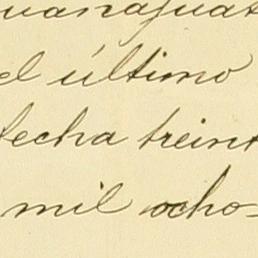 uanajuat
el último
fecha treint
mil ocho-